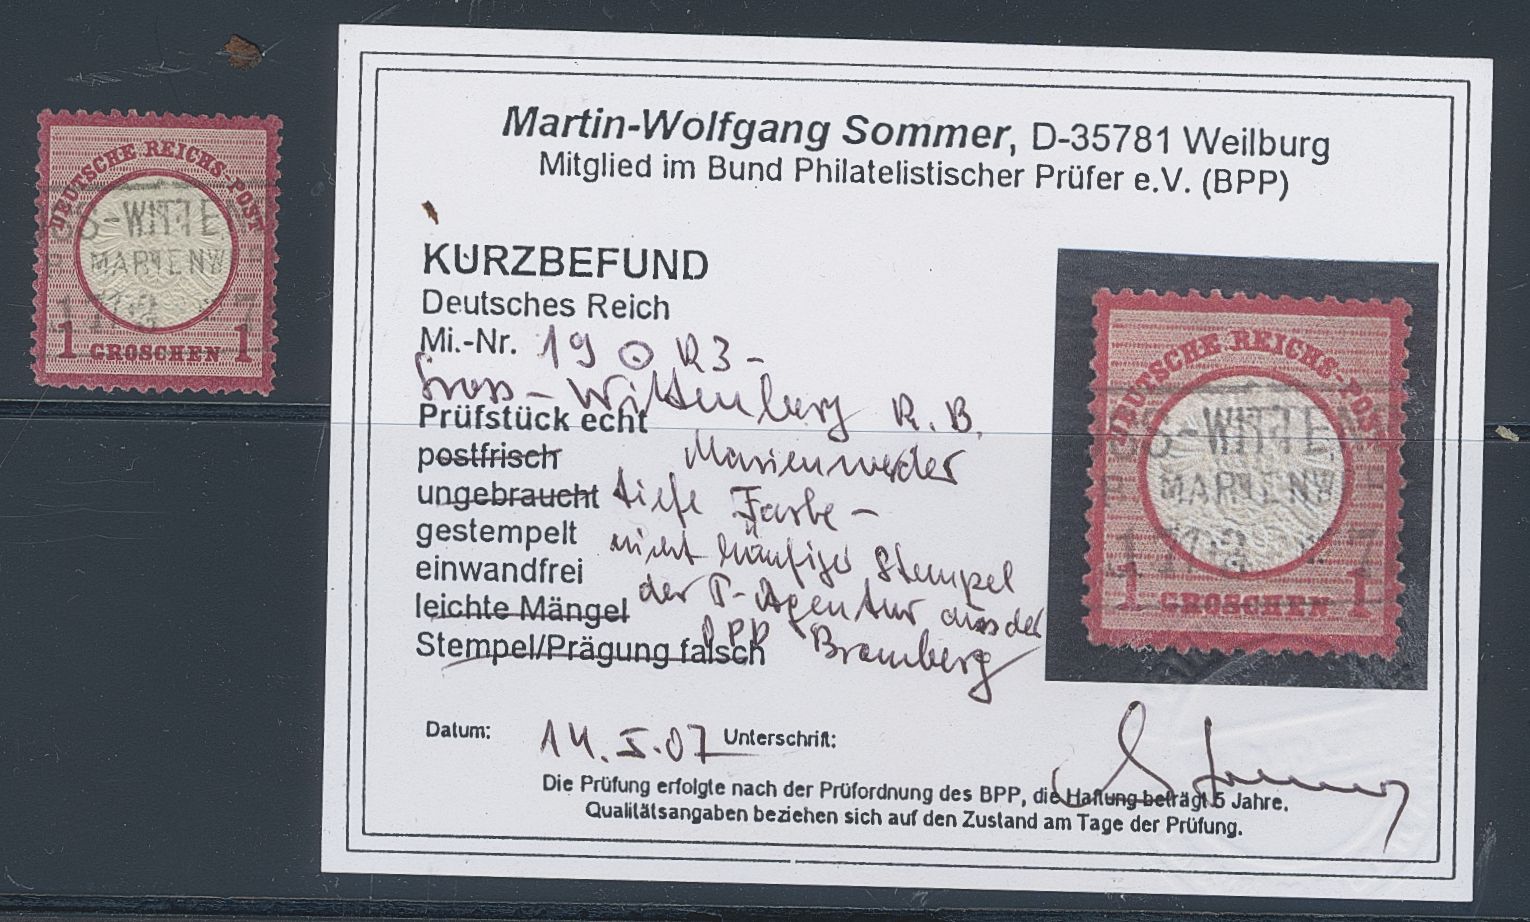 DEUTSCHE REICHS-POST
SS-WITTEN
MARIENW
1 GROSCHEN 1
Martin-Wolfgang Sommer, D-35781 Weilburg
Mitglied im Bund Philatelistischer Prüfer e.V. (BPP)
KURZBEFUND
Deutsches Reich
Mi.-Nr. 19 ⊙ R3-
Gross-Wittenberg R.B.
Prüfstück echt
postfrisch Marienwerder
ungebraucht tiefe Farbe -
gestempelt nicht häufiger Stempel
einwandfrei der P-Agentur aus der
leichte Mängel
Stempel/Prägung falsch OPD Bromberg
DEUTSCHE REICHS-POST
SS-WITTEN
MARIENW
1 GROSCHEN 1
Datum: 14.5.07 Unterschrift:
Die Prüfung erfolgte nach der Prüfordnung des BPP, die Haftung beträgt 5 Jahre.
Qualitätsangaben beziehen sich auf den Zustand am Tage der Prüfung.